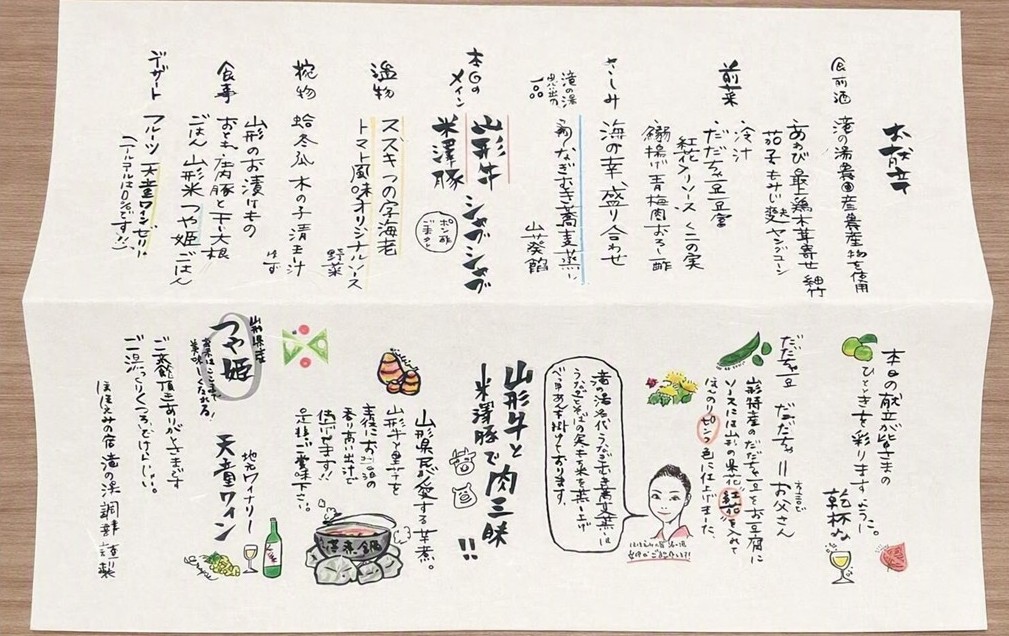 お献立
食前酒 滝の湯農園産農産物を使用
前菜
あわび 最上鶏木茸寄せ 細竹
茄子もみじ
ヤングコーン
冷汁
だだちゃ豆豆富
紅花入りソース くこの実
鰯揚げ青梅肉おろし酢
さしみ 海の幸 盛り合わせ
滝の湯
思い出の
一品
うなぎむき蕎麦蒸し
山葵餡
本日の
メイン
山形牛
米澤豚
シャブシャブ
ポン酢
ごまダレ
温物
スズキ つの字海老
トマト風味オリジナルソース
野菜
椀物 蛤 冬瓜 木の子 清玉汁
ゆず
食事
山形のお漬けもの
おとも 庄内豚と干し大根
ごはん 山形米 つや姫 ごはん
デザート フルーツ 天童ワインゼリー
(アルコールは0%です!!)
本日の献立が皆さまの
ひとときを彩りますように。
乾杯
だだちゃ豆 だだちゃ=お父さん
方言で
山形特産のだだちゃ豆をお豆腐に
ソースには山形の県花“紅花”を入れて
ほんのりピンク色に仕上げました。
滝の湯名代 うなぎむき蕎麦蒸しは
うなぎとそばの実を
べっ甲あんを掛けております。
山形牛と
米澤豚で肉三昧
!!
山形県民が愛する芋煮。
山形牛と里芋を
主役にお
香り高い出汁で
是非ご賞味下さい。
芋煮鍋
山形県産
つや姫
地元ワイナリー
天童ワイン
ご来館頂きありがとうございます
ご湯っくりくつろぎ下さい。
ほほえみの宿 滝の湯 調理